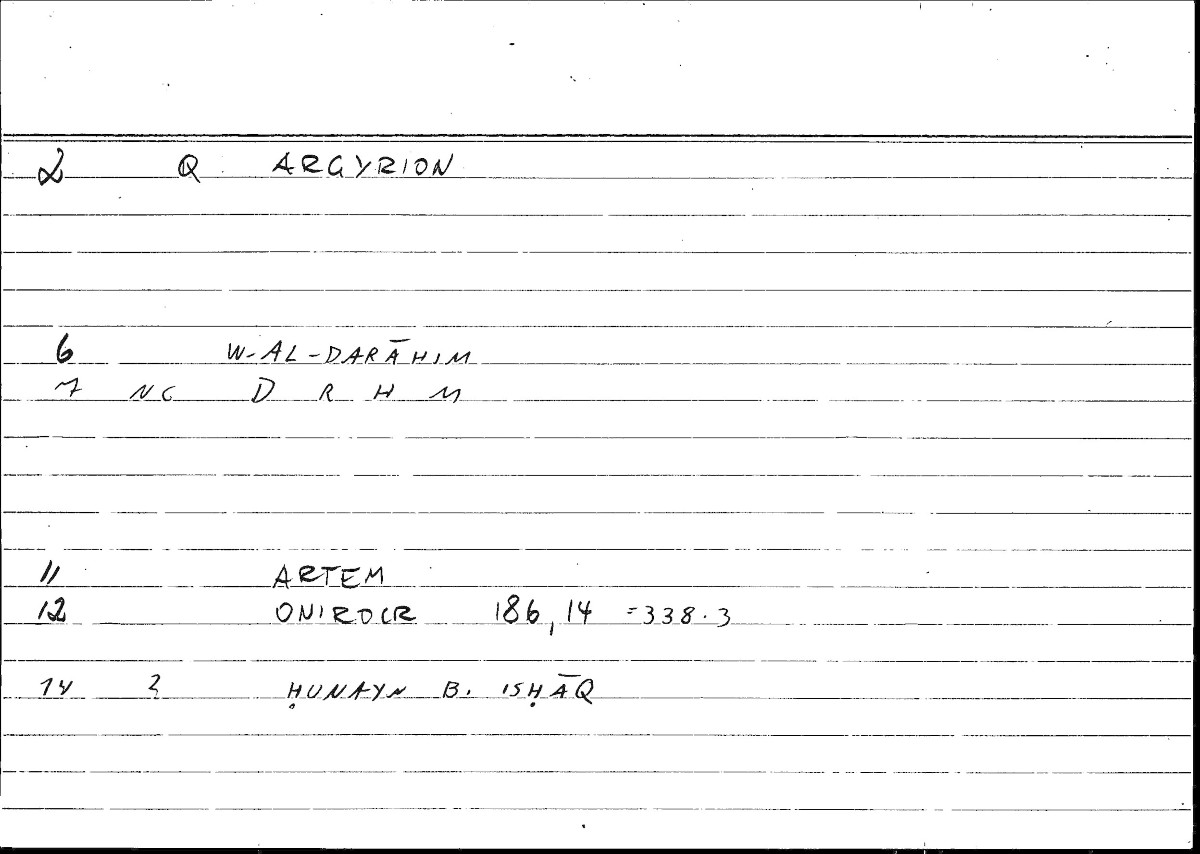 2 Q ARGYRION
6 W-AL-DARĀHIM
7 NC D R H M
11 ARTEM
12 ONIROCR 186,14 =338.3
14 2 ḤUNAYN B. ISḤĀQ